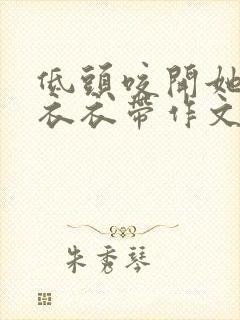 低頭咬開她
衣衣帶作文
朱秀琴